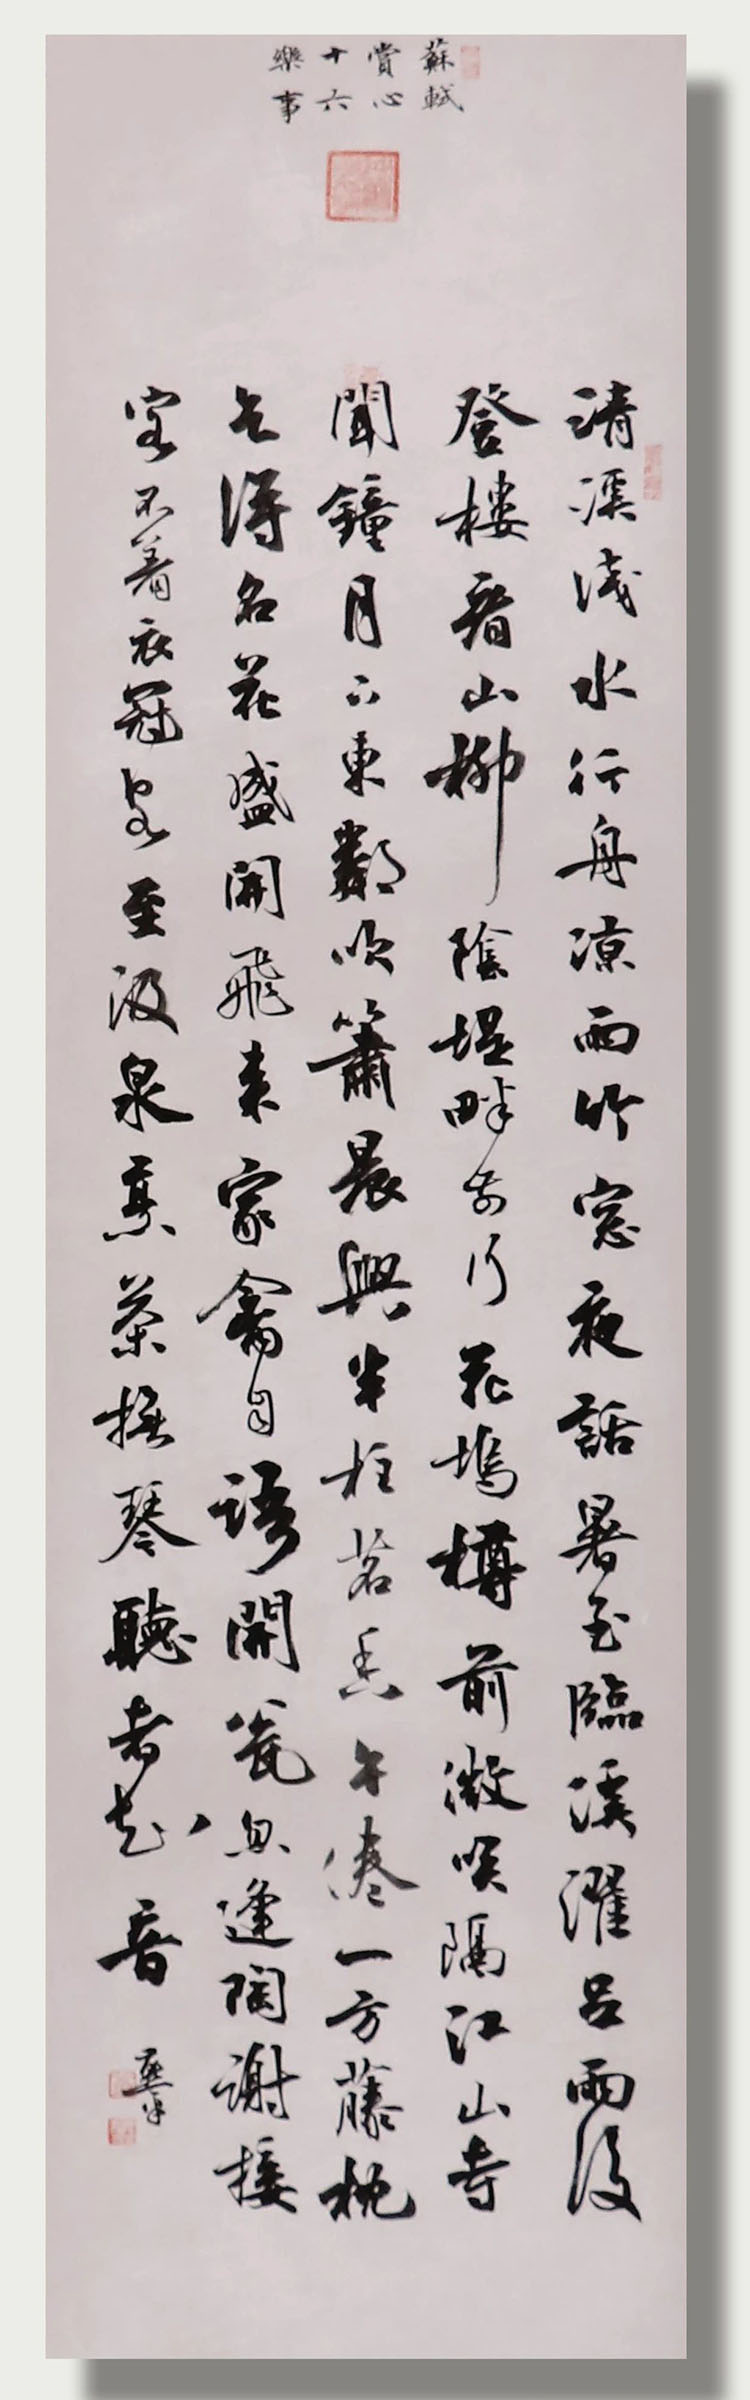 蘇軾
賞心
十六
樂事
清溪淺水行舟涼雨竹窓夜話暑至臨溪濯足雨後
登樓看山柳陰堤畔閒行花塢樽前微笑隔江山寺
聞鐘月下東鄰吹簫晨興半柱茗香午倦一方藤枕
乞得名花盛開飛來家禽自語開瓮忽逢陶謝接
客不着衣冠客至汲泉烹茶撫琴聽者知音